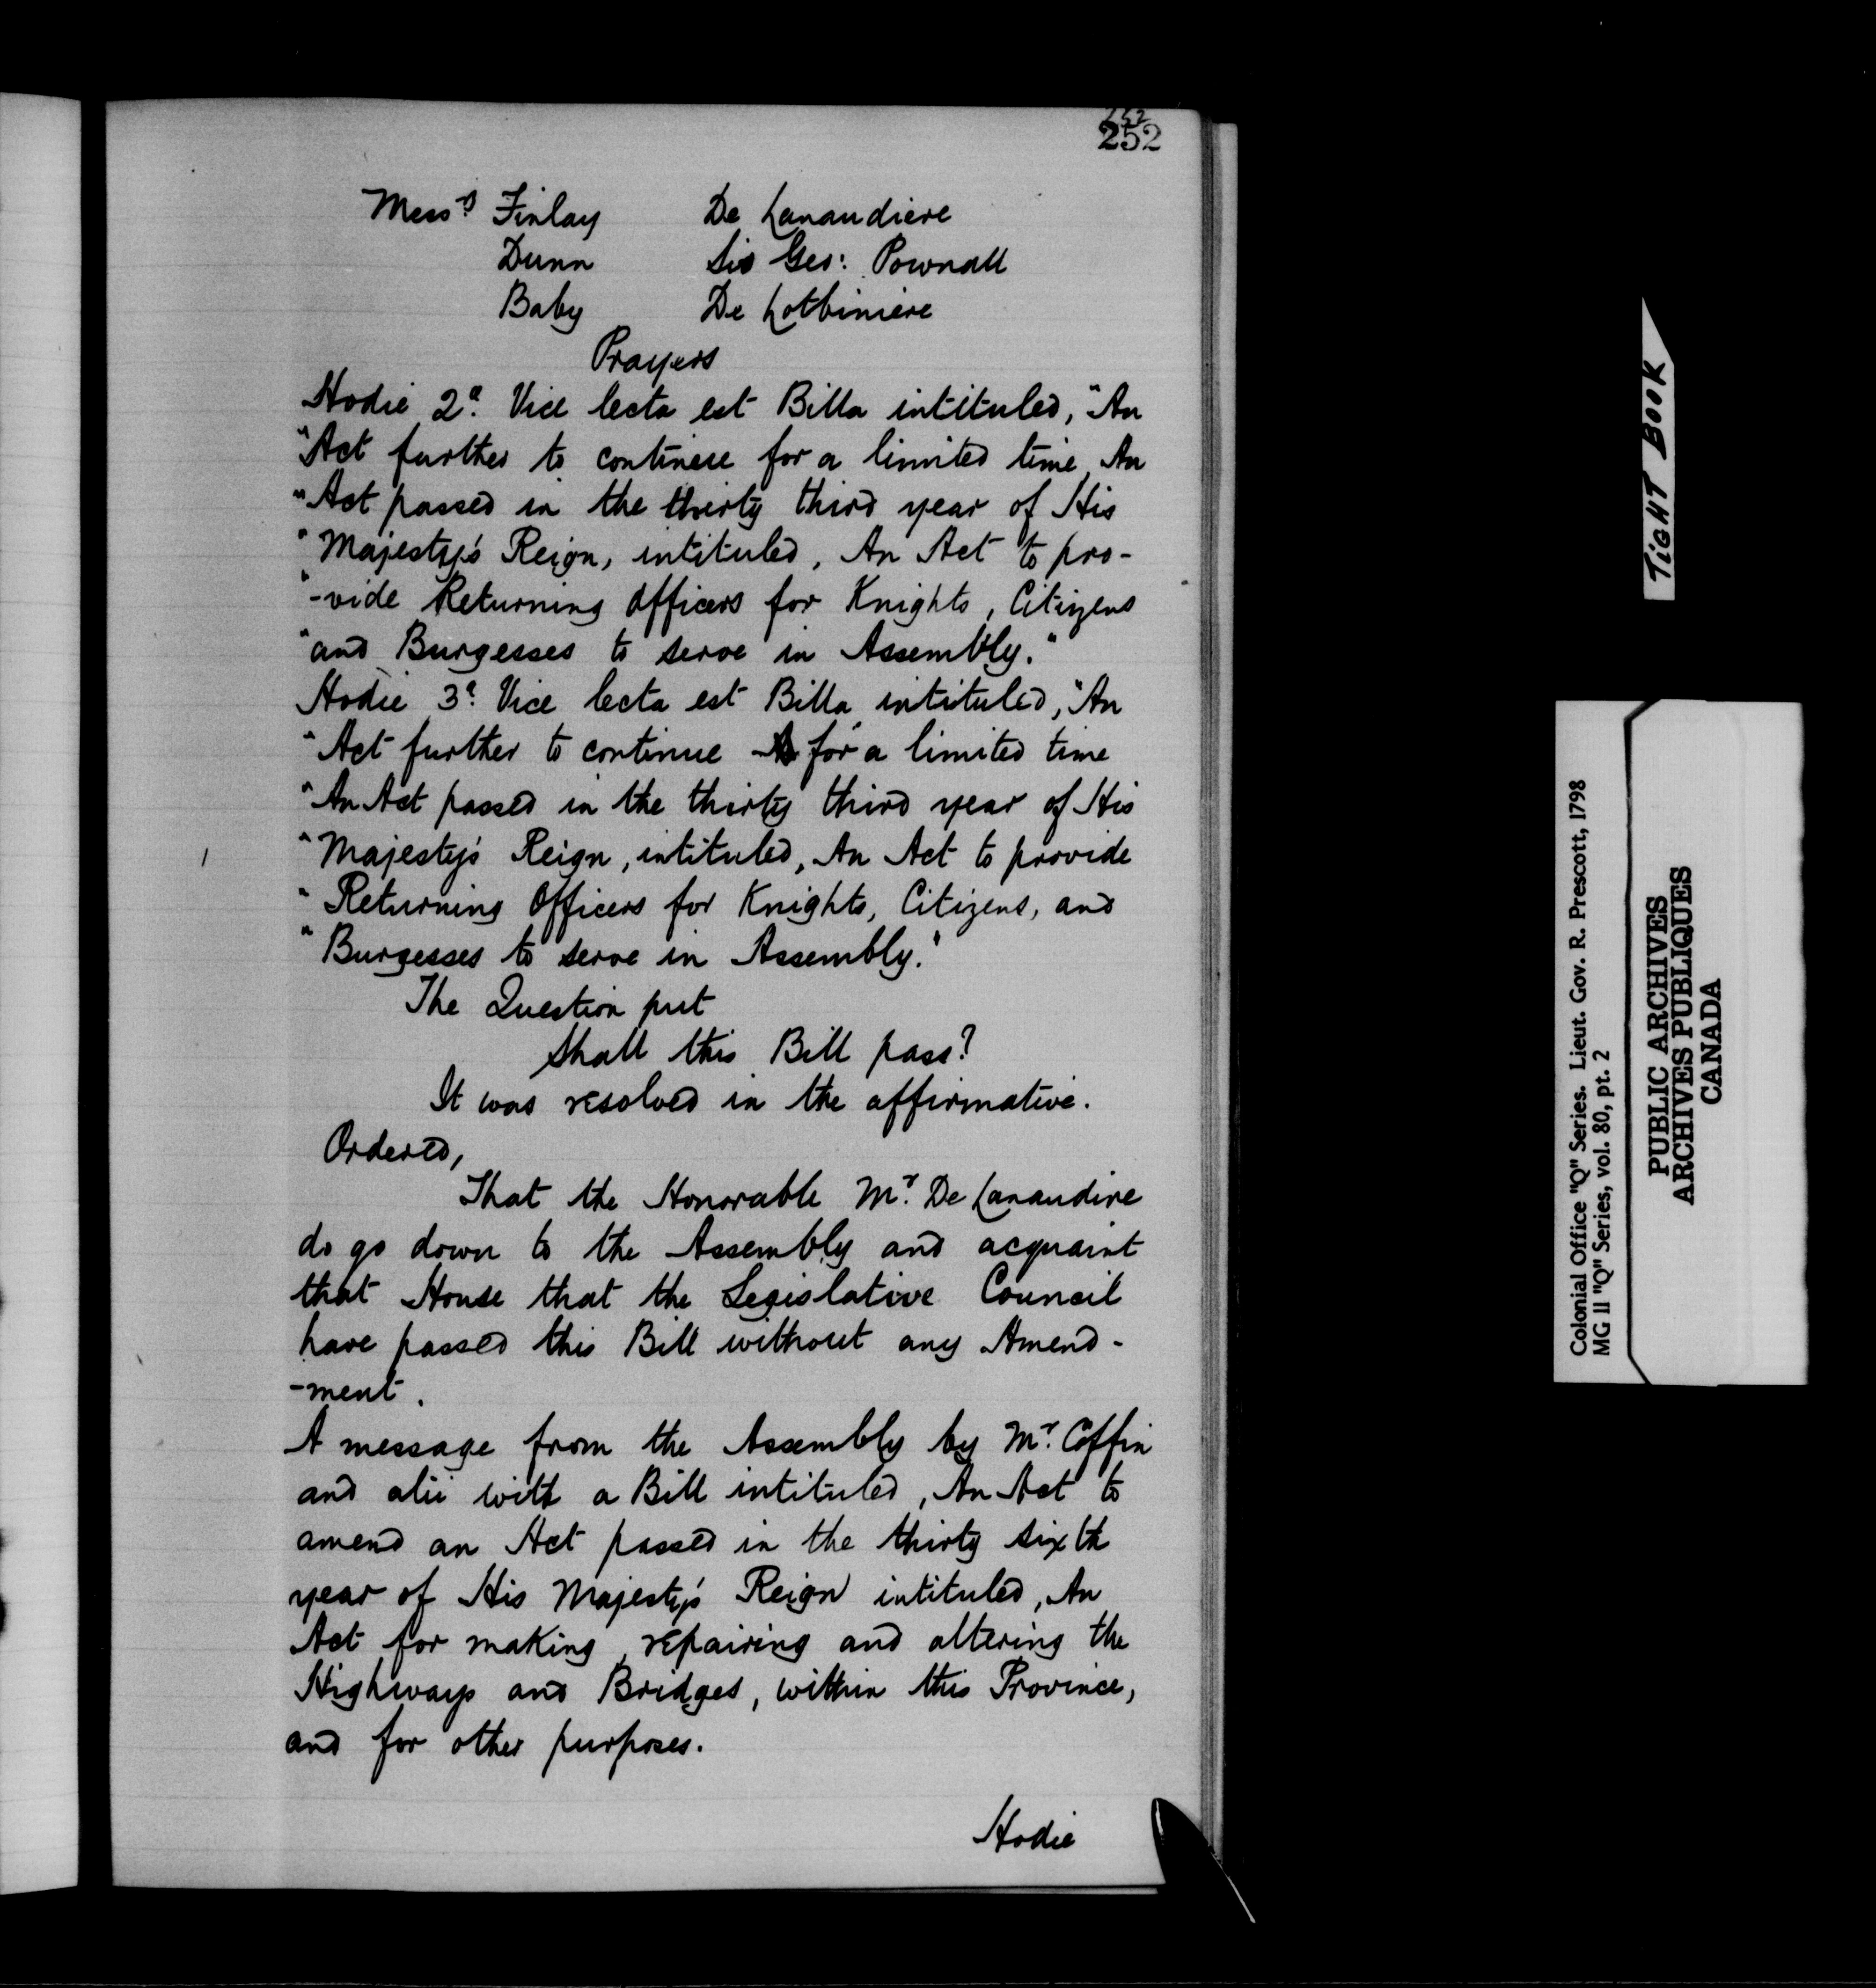 252
252
Mess.rs Finlay De Lanaudiere
Dunn Sir Geo: Pownall
Baby De Lotbiniere
Prayers
Hodie 2.a Vice lecta est Billa intituled, "An
"Act further to continue for a limited time, An
"Act passed in the thirty third year of His
"Majesty's Reign, intituled, An Act to pro-
"-vide Returning Officers for Knights, Citizens
"and Burgesses to serve in Assembly."
Hodie 3.a Vice lecta est Billa intituled, "An
"Act further to continue for a limited time
"An Act passed in the thirty third year of His
"Majesty's Reign, intituled, An Act to provide
"Returning Officers for Knights, Citizens, and
"Burgesses to serve in Assembly."
The Question put
Shall this Bill pass?
It was resolved in the affirmative.
Ordered,
That the Honorable Mr. De Lanaudire
do go down to the Assembly and acquaint
that House that the Legislative Council
have passed this Bill without any Amend-
-ment.
A message from the Assembly by Mr. Coffin
and alii with a Bill intituled, An Act to
amend an Act passed in the thirty sixth
year of His Majesty's Reign intituled, An
Act for making, repairing and altering the
Highways and Bridges, within this Province,
and for other purposes.
Hodie
TIGHT BOOK
Colonial Office "Q" Series. Lieut. Gov. R. Prescott, 1798
MG II "Q" Series, vol. 80, pt. 2
PUBLIC ARCHIVES
ARCHIVES PUBLIQUES
CANADA